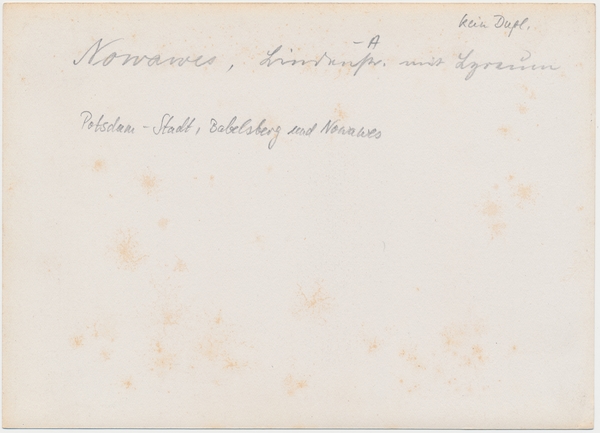 kein Dupl.
- A
Nowawes, Lindenstr. mit Lyzeum
Potsdam - Stadt, Babelsberg und Nowawes